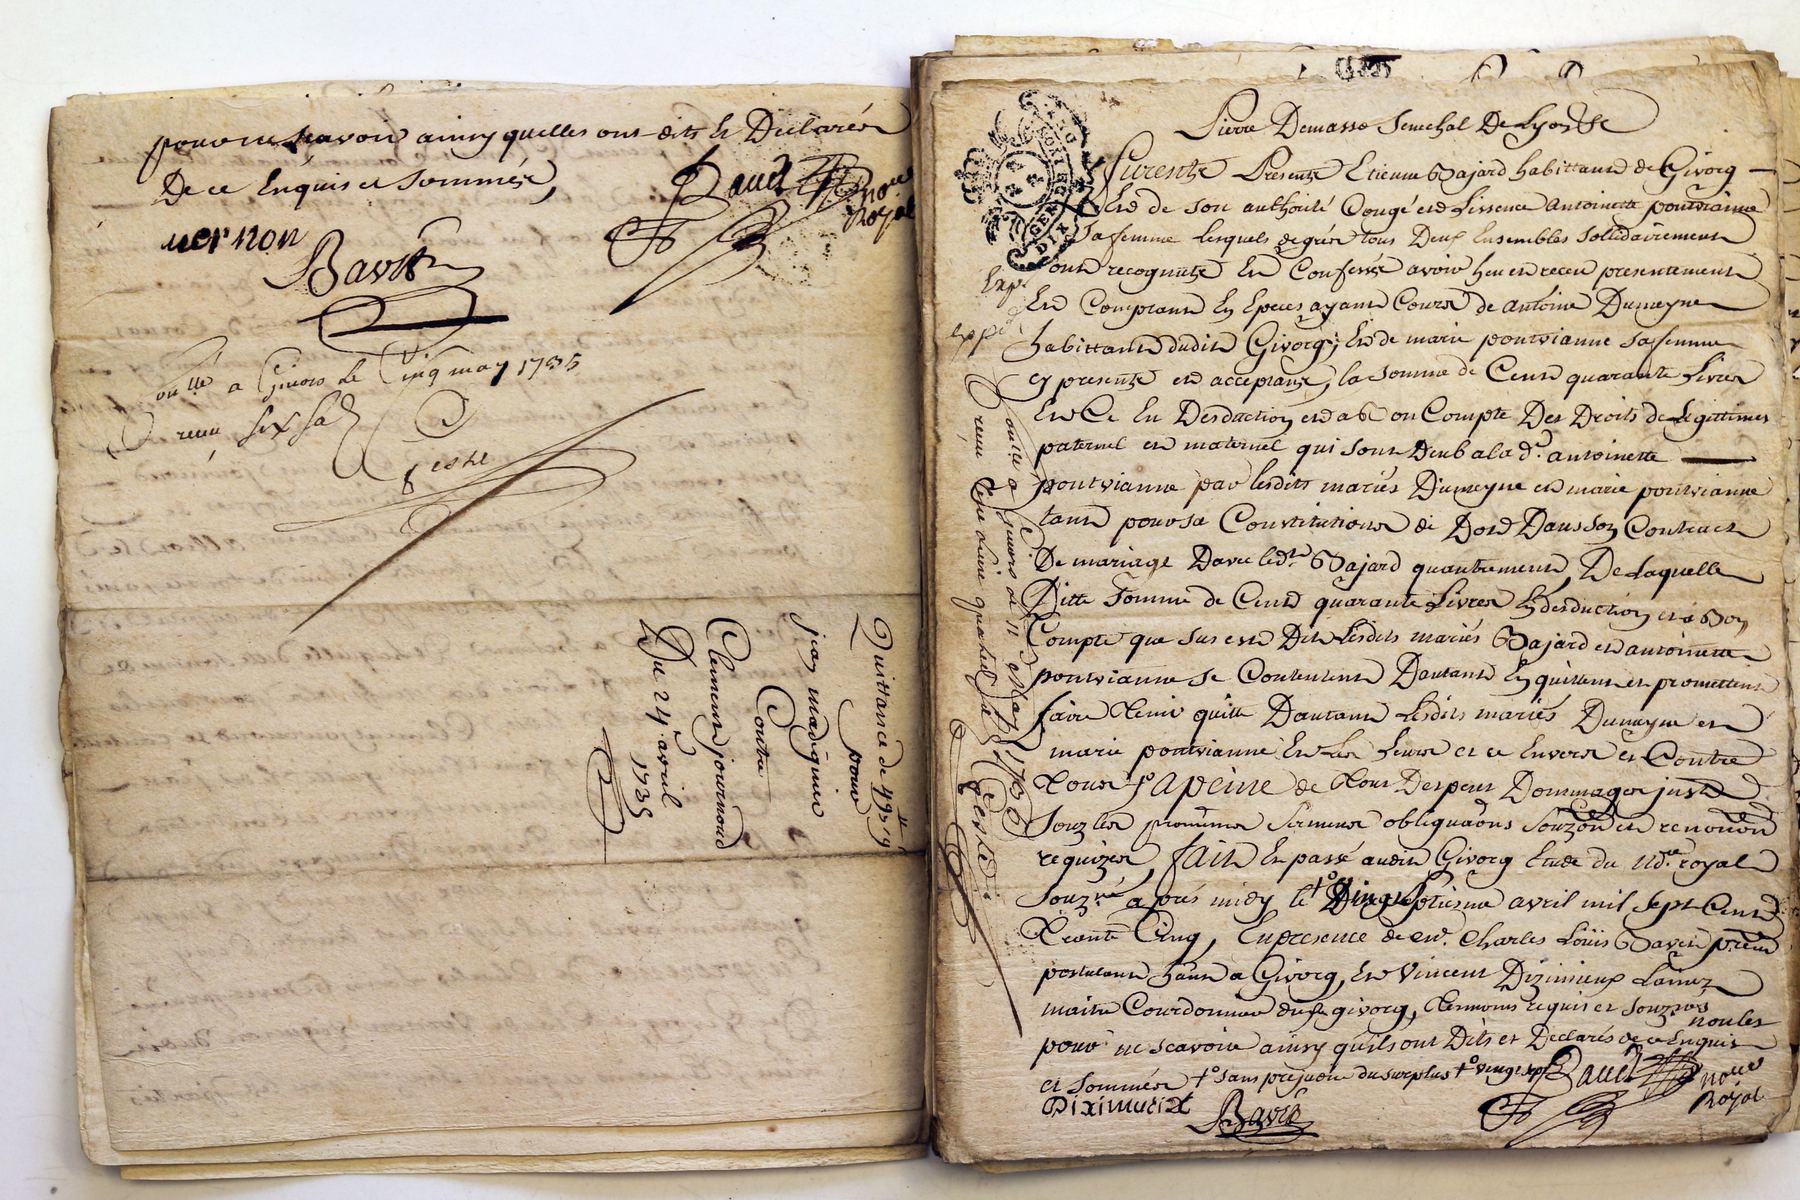 pour ne scavoir ainsy quelles ont dits et Declarés
De ce Enquis et Sommés,
vernon
Bavet
Bavet
no.re
Royal
a Givors le Cinq may 1735
receu six sols
Geste
Quittance de 49
pour
jean madignier
Contre
Clemence journoud
Du 24.e avril
1735
Pierre Demasso Senechal De Lyon &c
GEN DE LYON
DIX
furents Presents Etienne Bajard habittant de Givorg
et de son authorité Congé et Lissence antoinette pontvianne
sa femme lesquels de grés tous Deux Ensembles solidairement
ont recognuts Et Confessés avoir heu et receu presentement
Exp.
Et Comptant En Epeces ayant Cours de antoine Dumeyne
expé
habittant dudit Givorg, Et de marie pontvianne sa femme
cy presents et acceptants, la somme de Cent quarante Livres
Et Ce En Desduction et a Bon Compte Des Droits de Legittimes
paternel et maternel qui sont Deub a la d.e antoinette
pontvianne par lesdits mariés Dumeyne et marie pontvianne
tant pour sa Constitution de Dotte Dans son Contract
De mariage Davec led.it Bajard quautrement, De Laquelle
Ditte Somme de Cent quarante Livres En desduction et a Bon
Compte que sus est Dit Lesdits mariés Bajard et antoinette
pontvianne se Contentent Dautant En quittent et promettent
faire Tenir quitte Dautant Lesdits mariés Dumeyne et
marie pontvianne Et Les Leurs et ce Envers et Contre
Tous +o a peine de Tous Despens Dommages
Souz les
requizes, fait Et passé audit Givorg Etude du no.re royal
Souz.né après midy le +o avril mil sept Cent
Trante Cinq, En presence de Charles Louïs Bavet
postulant a Givorg, et Vincent Diximieux Lainez
maitre Courdonnier dud. givorg, Temoins requis et souz.nés
non les
pour ne scavoir ainsy quils ont Dits et Declarés de ce Enquis
et Sommés +o sans prejudice du surplus +o vingt sept
Bavet
no.re
Royal
Diximieux
Bavet
a Givors le 11 May 1735
receu une livre quatre sols
Geste